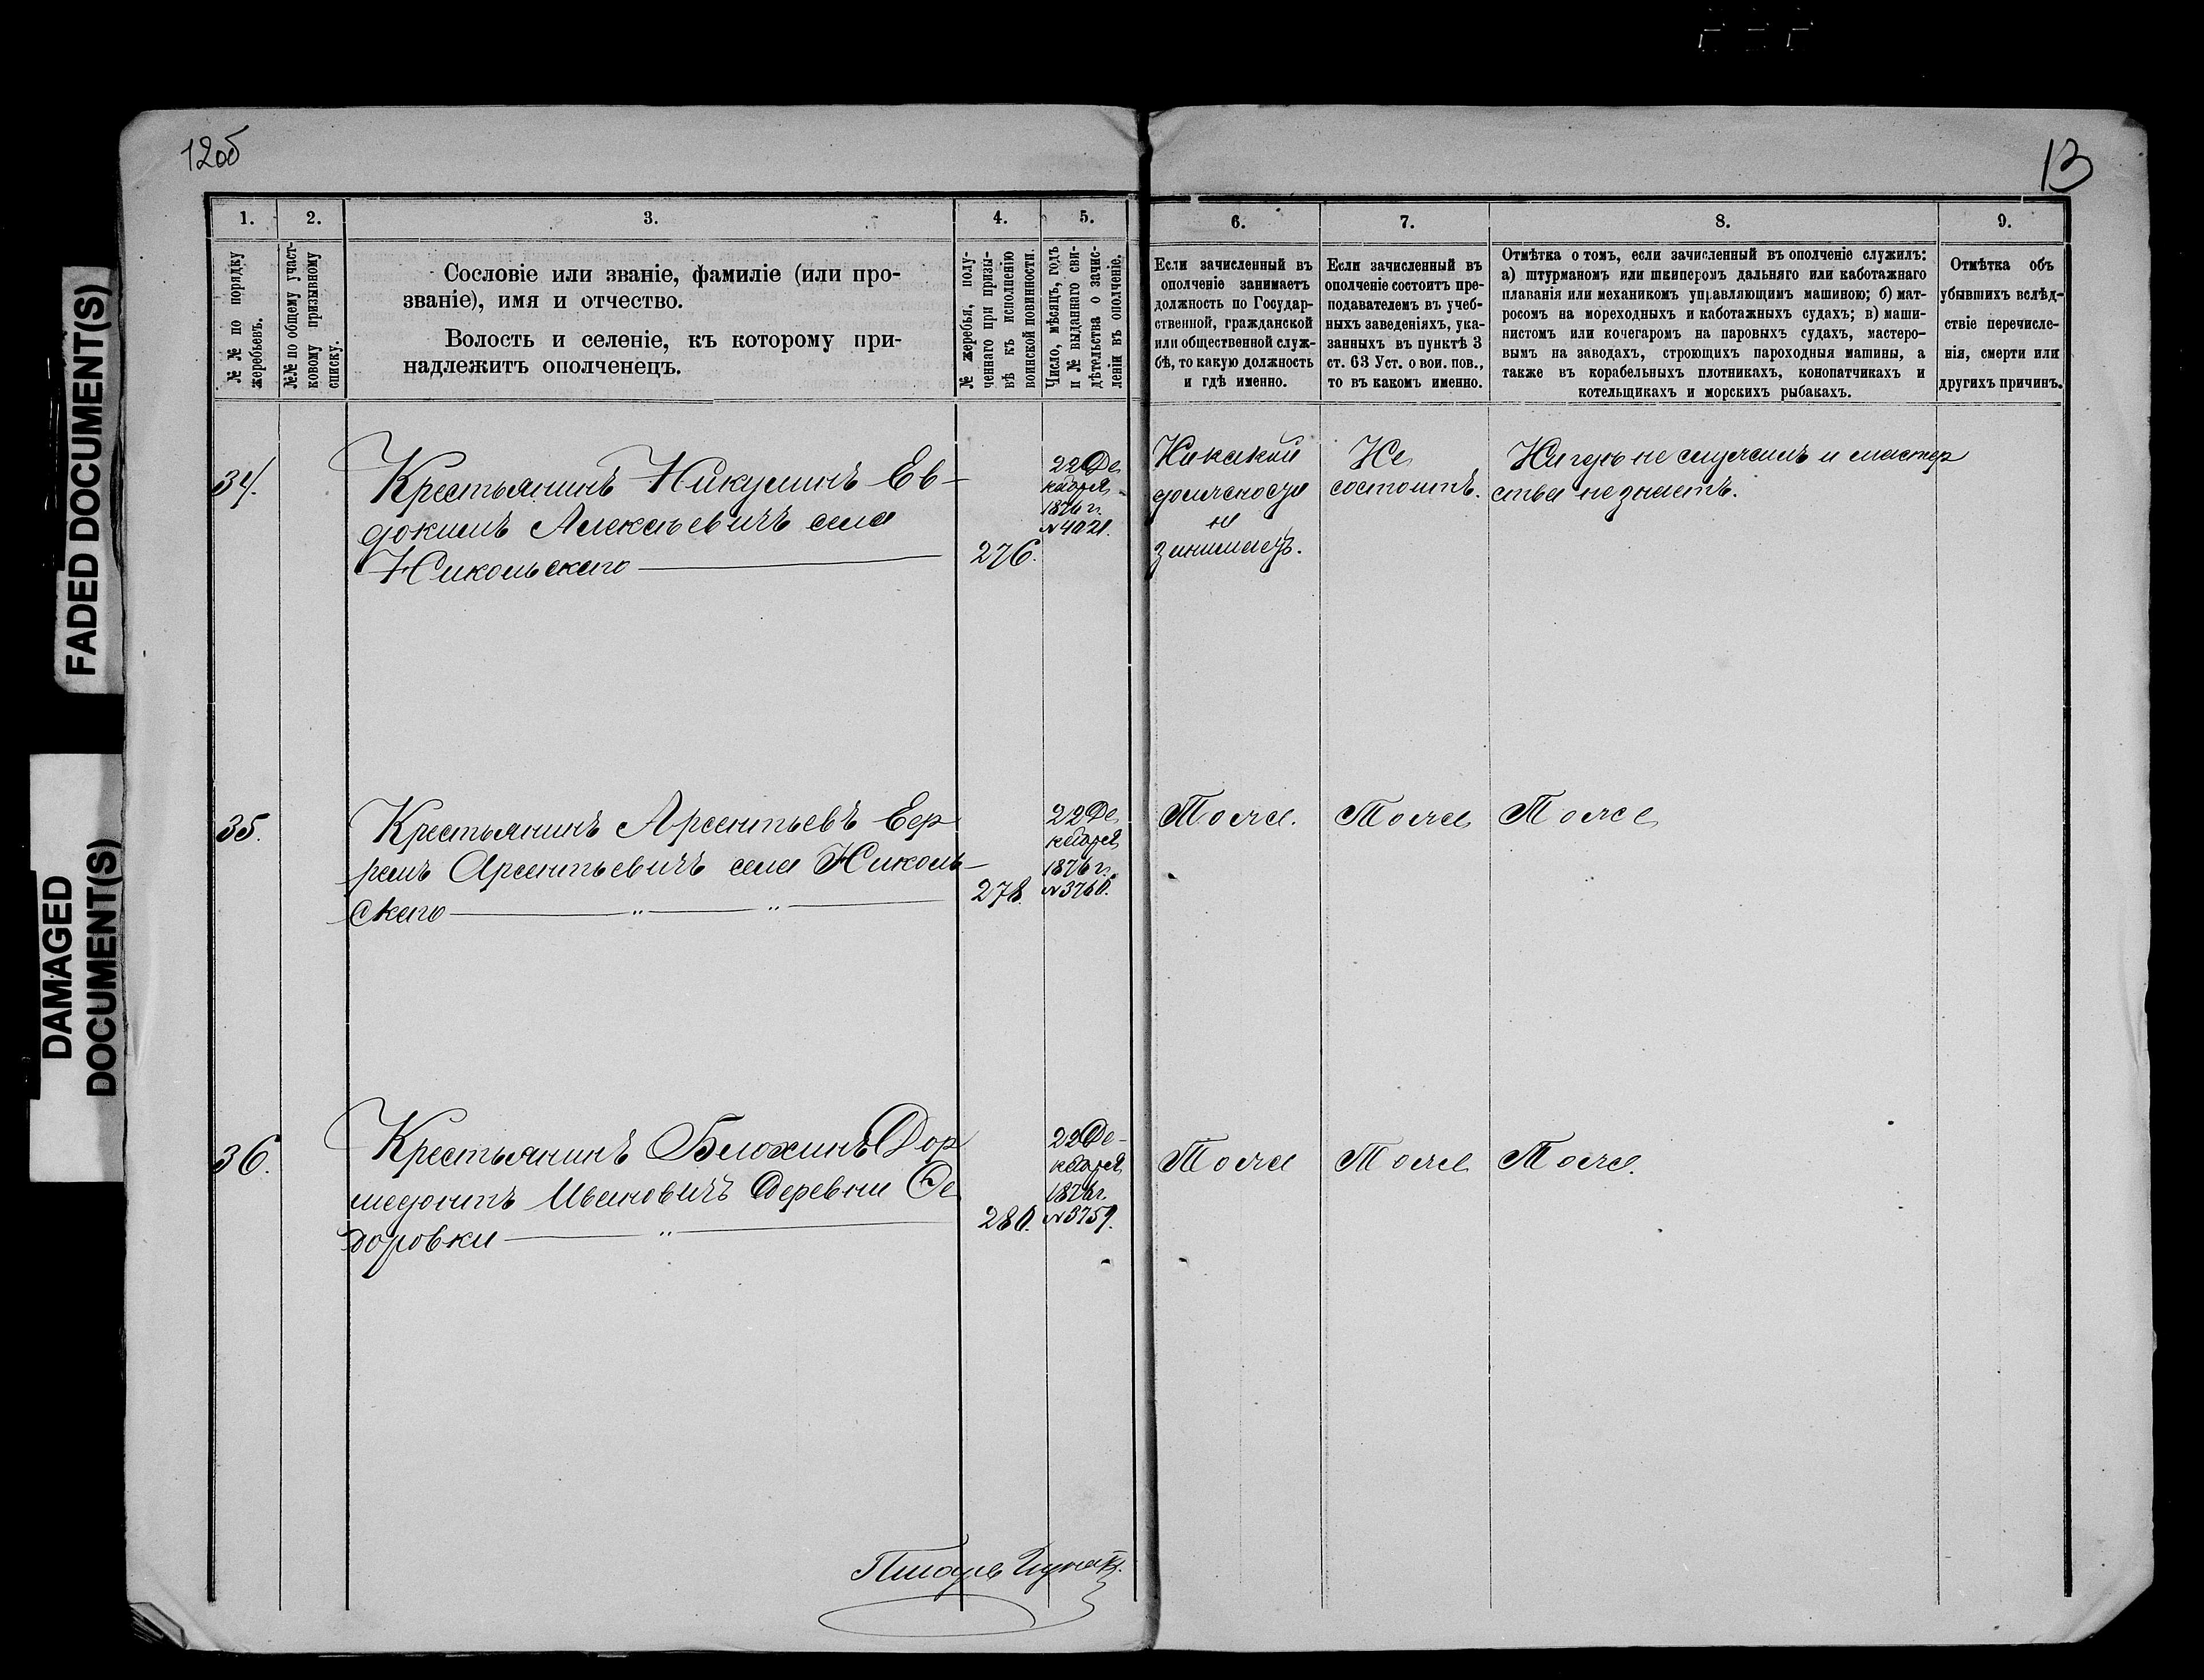 12об
13
FADED DOCUMENT(S)
DAMAGED
DOCUMENT(S)
1.
№ № по порядку
жеребьевъ.
2.
№№ по общему участ-
ковому призывному
списку.
3.
Сословіе или званіе, фамиліе (или про-
званіе), имя и отчество.
Волость и селеніе, къ которому при-
надлежитъ ополченецъ.
4.
№ жеребья, полу-
ченнаго при призы-
вѣ къ исполненію
воинской повинности.
5.
Число, мѣсяцъ, годъ
и № выданнаго сви-
дѣтельства о зачис-
леніи въ ополченіе.
6.
Если зачисленный въ
ополченіе занимаетъ
должность по Государ-
ственной, гражданской
или общественной служ-
бѣ, то какую должность
и гдѣ именно.
7.
Если зачисленный въ
ополченіе состоитъ пре-
подавателемъ въ учеб-
ныхъ заведеніяхъ, ука-
занныхъ въ пунктѣ 3
ст. 63 Уст. о вои. пов.,
то въ какомъ именно.
8.
Отмѣтка о томъ, если зачисленный въ ополченіе служилъ:
а) штурманомъ или шкиперомъ дальняго или каботажнаго
плаванія или механикомъ управляющимъ машиною; б) мат-
росомъ на мореходныхъ и каботажныхъ судахъ; в) маши-
нистомъ или кочегаромъ на паровыхъ судахъ, мастеро-
вымъ на заводахъ, строющихъ пароходныя машины, а
также въ корабельныхъ плотникахъ, конопатчикахъ и
котельщикахъ и морскихъ рыбакахъ.
9.
Отмѣтка объ
убывшихъ вслѣд-
ствіе перечисле-
нія, смерти или
другихъ причинъ.
34.
Крестьянинъ Никулинъ Ев-
докимъ Алексѣевичъ села
Никольскаго
276.
22 Де
кабря
1876 г.
№ 4021.
Никакой
должности
не
занимаетъ.
Не
состоитъ.
Нигдѣ не служилъ и мастер
ства не знаетъ.
35.
Крестьянинъ Арсентьевъ Еф
ремъ Арсентьевичъ села Николь-
скаго
278.
22 Де
кабря
1876 г.
№ 3760.
Тоже.
Тоже
Тоже
36.
Крестьянинъ Блохинъ Дор
медонтъ Ивановичъ деревни Ѳе
доровки
280.
22 Де-
кабря
1876 г.
№ 3759.
Тоже
Тоже
Тоже.
Писарь